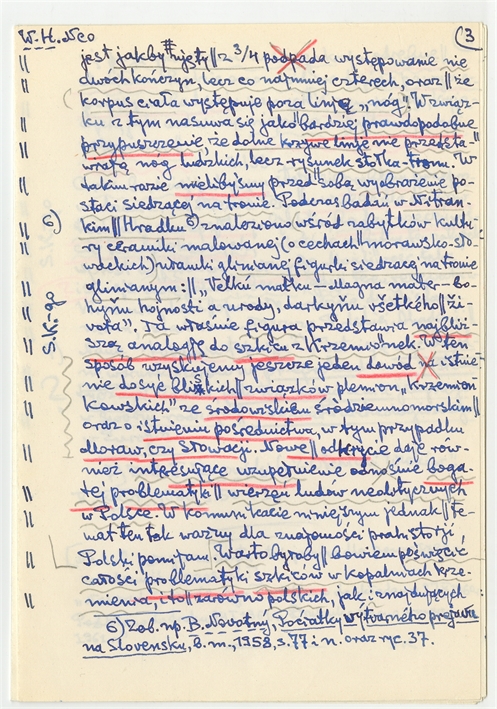 W.H. Neo
3
jest jakby ujęty z 3/4 podpada występowanie nie
dwóch kończyn, lecz co najmniej czterech, oraz że
korpus ciała występuje poza linię „nóg”. W związ-
ku z tym nasuwa się jako bardziej prawdopodobne
przypuszczenie, że dolne krzywe linje nie przedsta-
wiają nóg ludzkich, lecz rysunek stołka-tronu. W
takim razie mielibyśmy przed sobą wyobrażenie po-
staci siedzącej na tronie. Podczas badań w Nitran-
kim Hradku 6) znaleziono wśród zabytków kultu-
ry ceramiki malowanej (o cechach morawsko-sło-
wackich) ułamki glinianej figurki siedzącej na tronie
glinianym: „Veľkú matku – Magna mater – bo-
hyňu hojnosti a urody, darkyňu všetkého ži-
vota”. Ta właśnie figura przedstawia najbliż-
szą analogię do szkicu z Krzemionek. W ten
sposób uzyskujemy jeszcze jeden dowód istnie-
nie dosyć bliskich związków plemion „krzemion
kowskich” ze środowiskiem śródziemnomorskim
oraz o istnieniu pośrednictwa, w tym przypadku
Moraw, czy Słowacji. Nowe odkrycie daje rów-
nież interesujące uzupełnienie odnośnie boga
tej problematyki wierzeń ludów neolitycznych
w Polsce. W komunikacie niniejszym jednak te-
mat ten tak ważny dla znajomości prahistorji
Polski pomijam. Warto byłoby bowiem poświęcić
całości problematyki szkiców w kopalniach krze-
mienia, zarówno polskich, jak i znajdujących
6) Zob. np. B. Novotny, Počiatky výtvarného prejavu
na Slovensku, B. m., 1958, s. 77 i n. oraz ryc. 37.
6)
S.K.-go